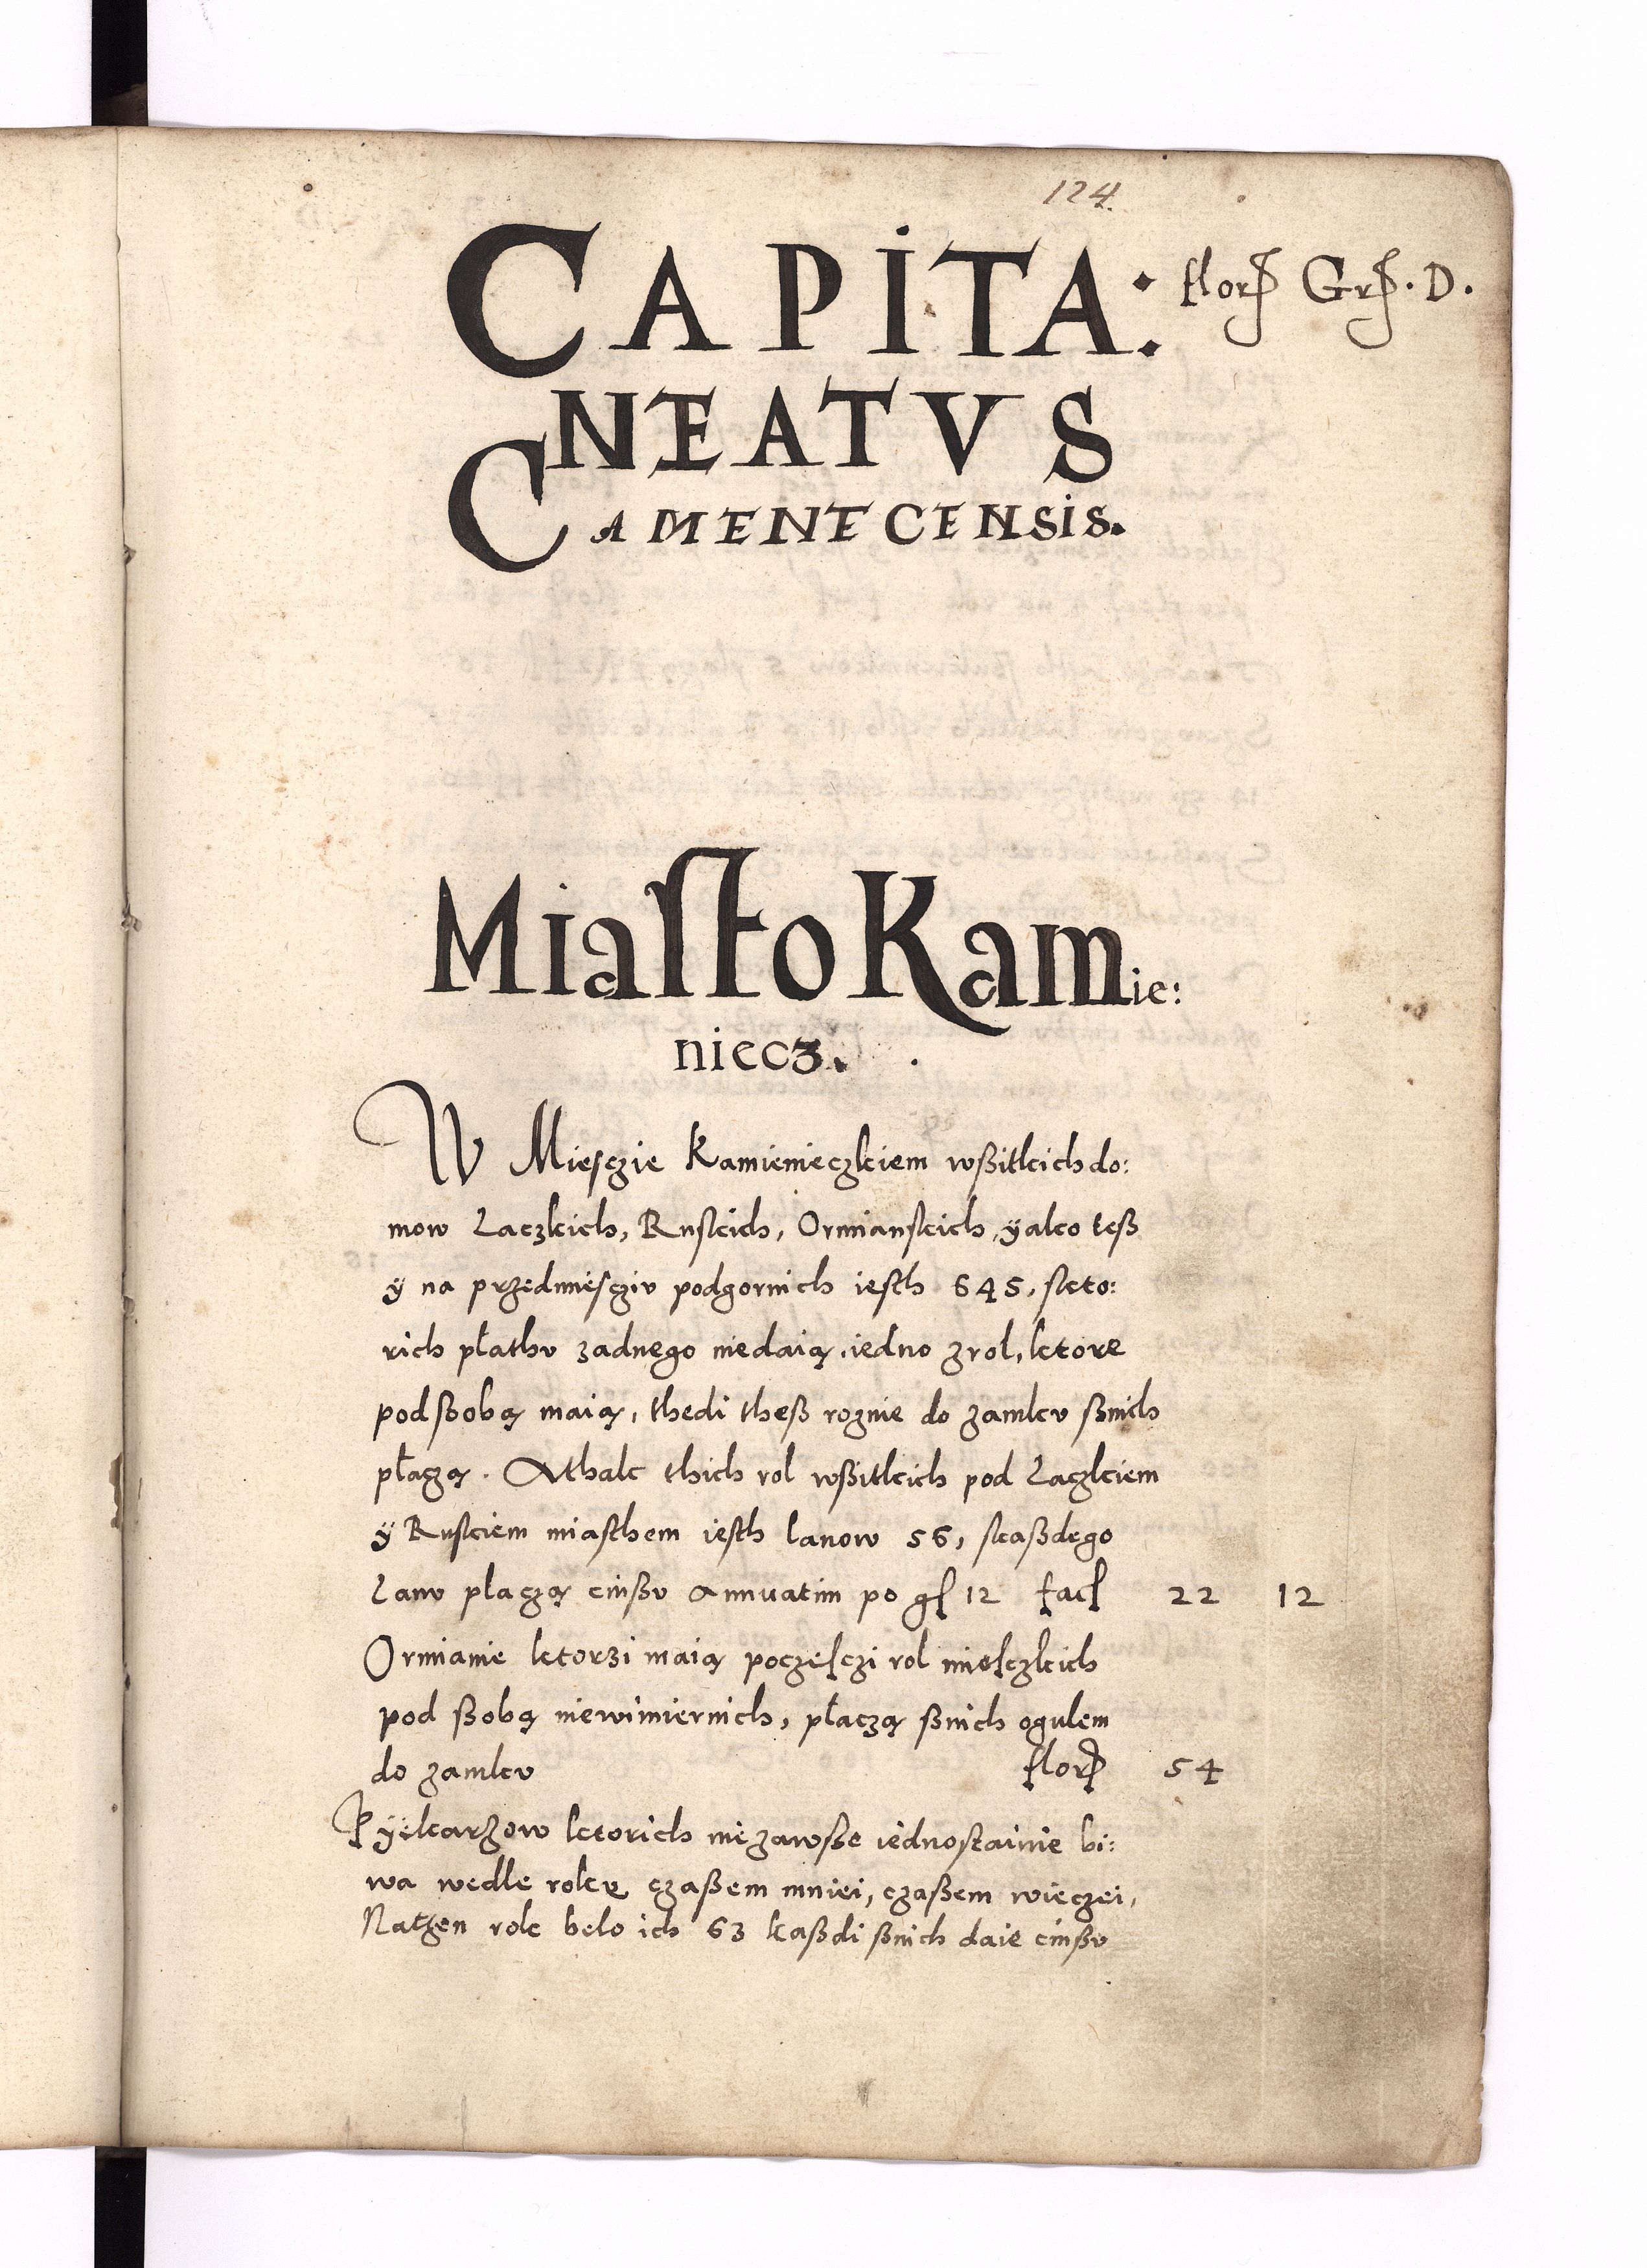 124.
CAPITA:
florꝭ Grꝭ. D.
NEATVS
CAMENECENSIS.
Miasto Kamie:
niecz.
W Miesczie Kamienieczkiem wßitkich do:
mow Laczkich, Ruskich, Ormianskich, ÿako teß
ÿ na przedmiescziv podgornich iesth 645, skto:
rich płathv zadnego niedaią, iedno z rol, ktore
pod ßobą maią, thedi theß roznie do zamkv ßnich
płaczą. Athak thich rol wßitkich pod Laczkiem
ÿ Ruskiem miasthem iesth lanow 56, skaßdego
Lanv placzą cinßv Annuatim po gſ 12 facſ 22 12
Ormianie ktorzi maią poczesczi rol mieſczkich
pod ßobą niewimiernich, płaczą ßnich ogulem
do zamkv florꝭ 54
Pÿekarzow ktorich nie zawsße iednostainie bi:
wa wedle rokv czaßem mniei, czaßem wieczei,
Naten rok belo ich 63 kaßdi ßnich daie cinßv